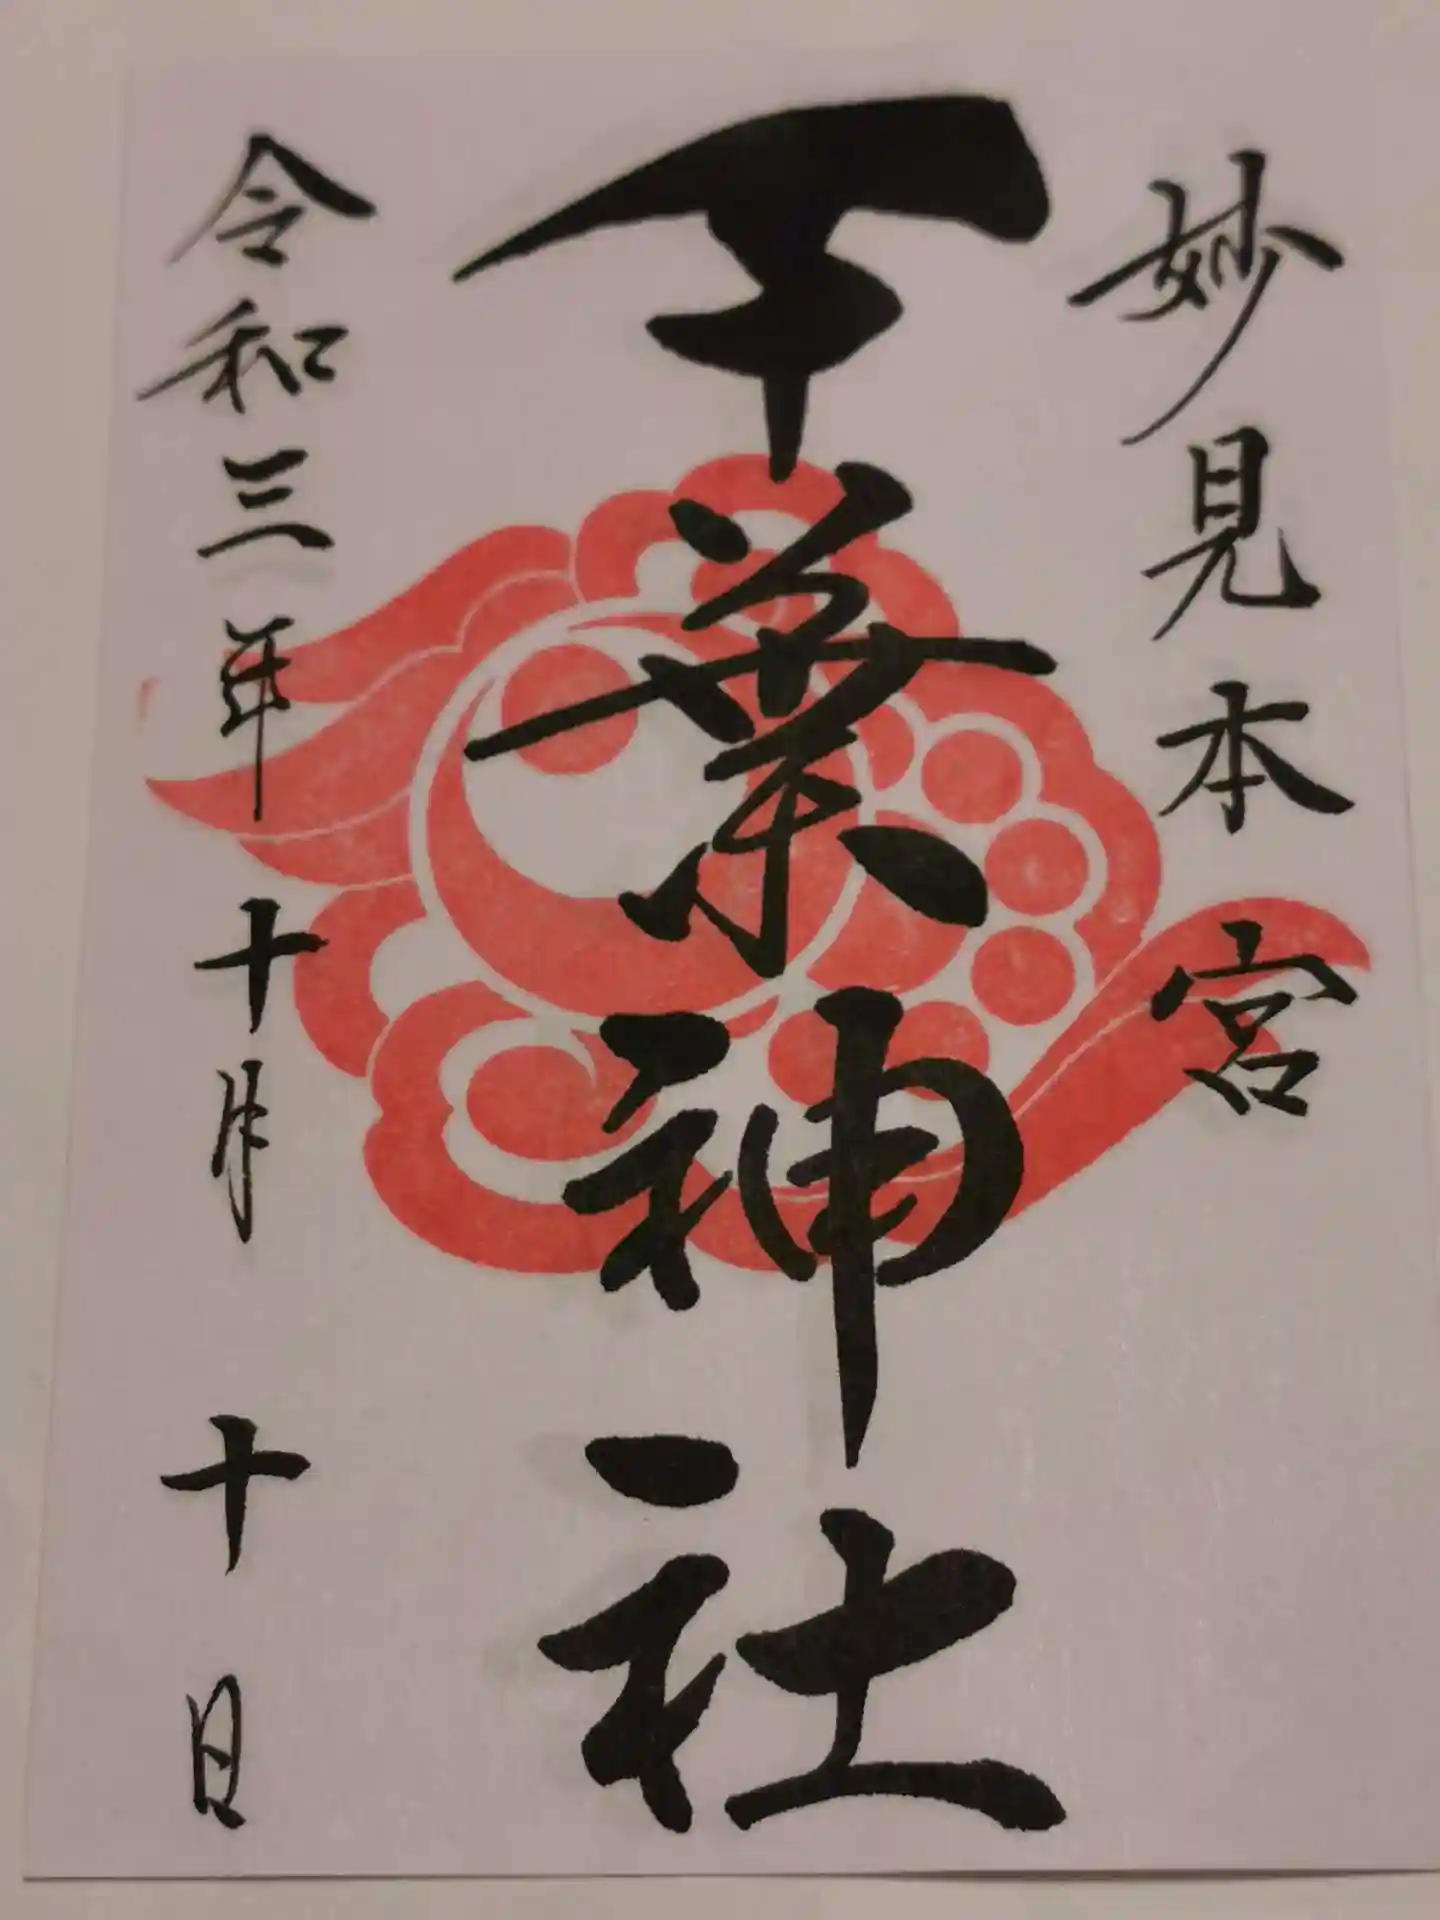 妙見本宮
千葉神社
令和三年十月十日